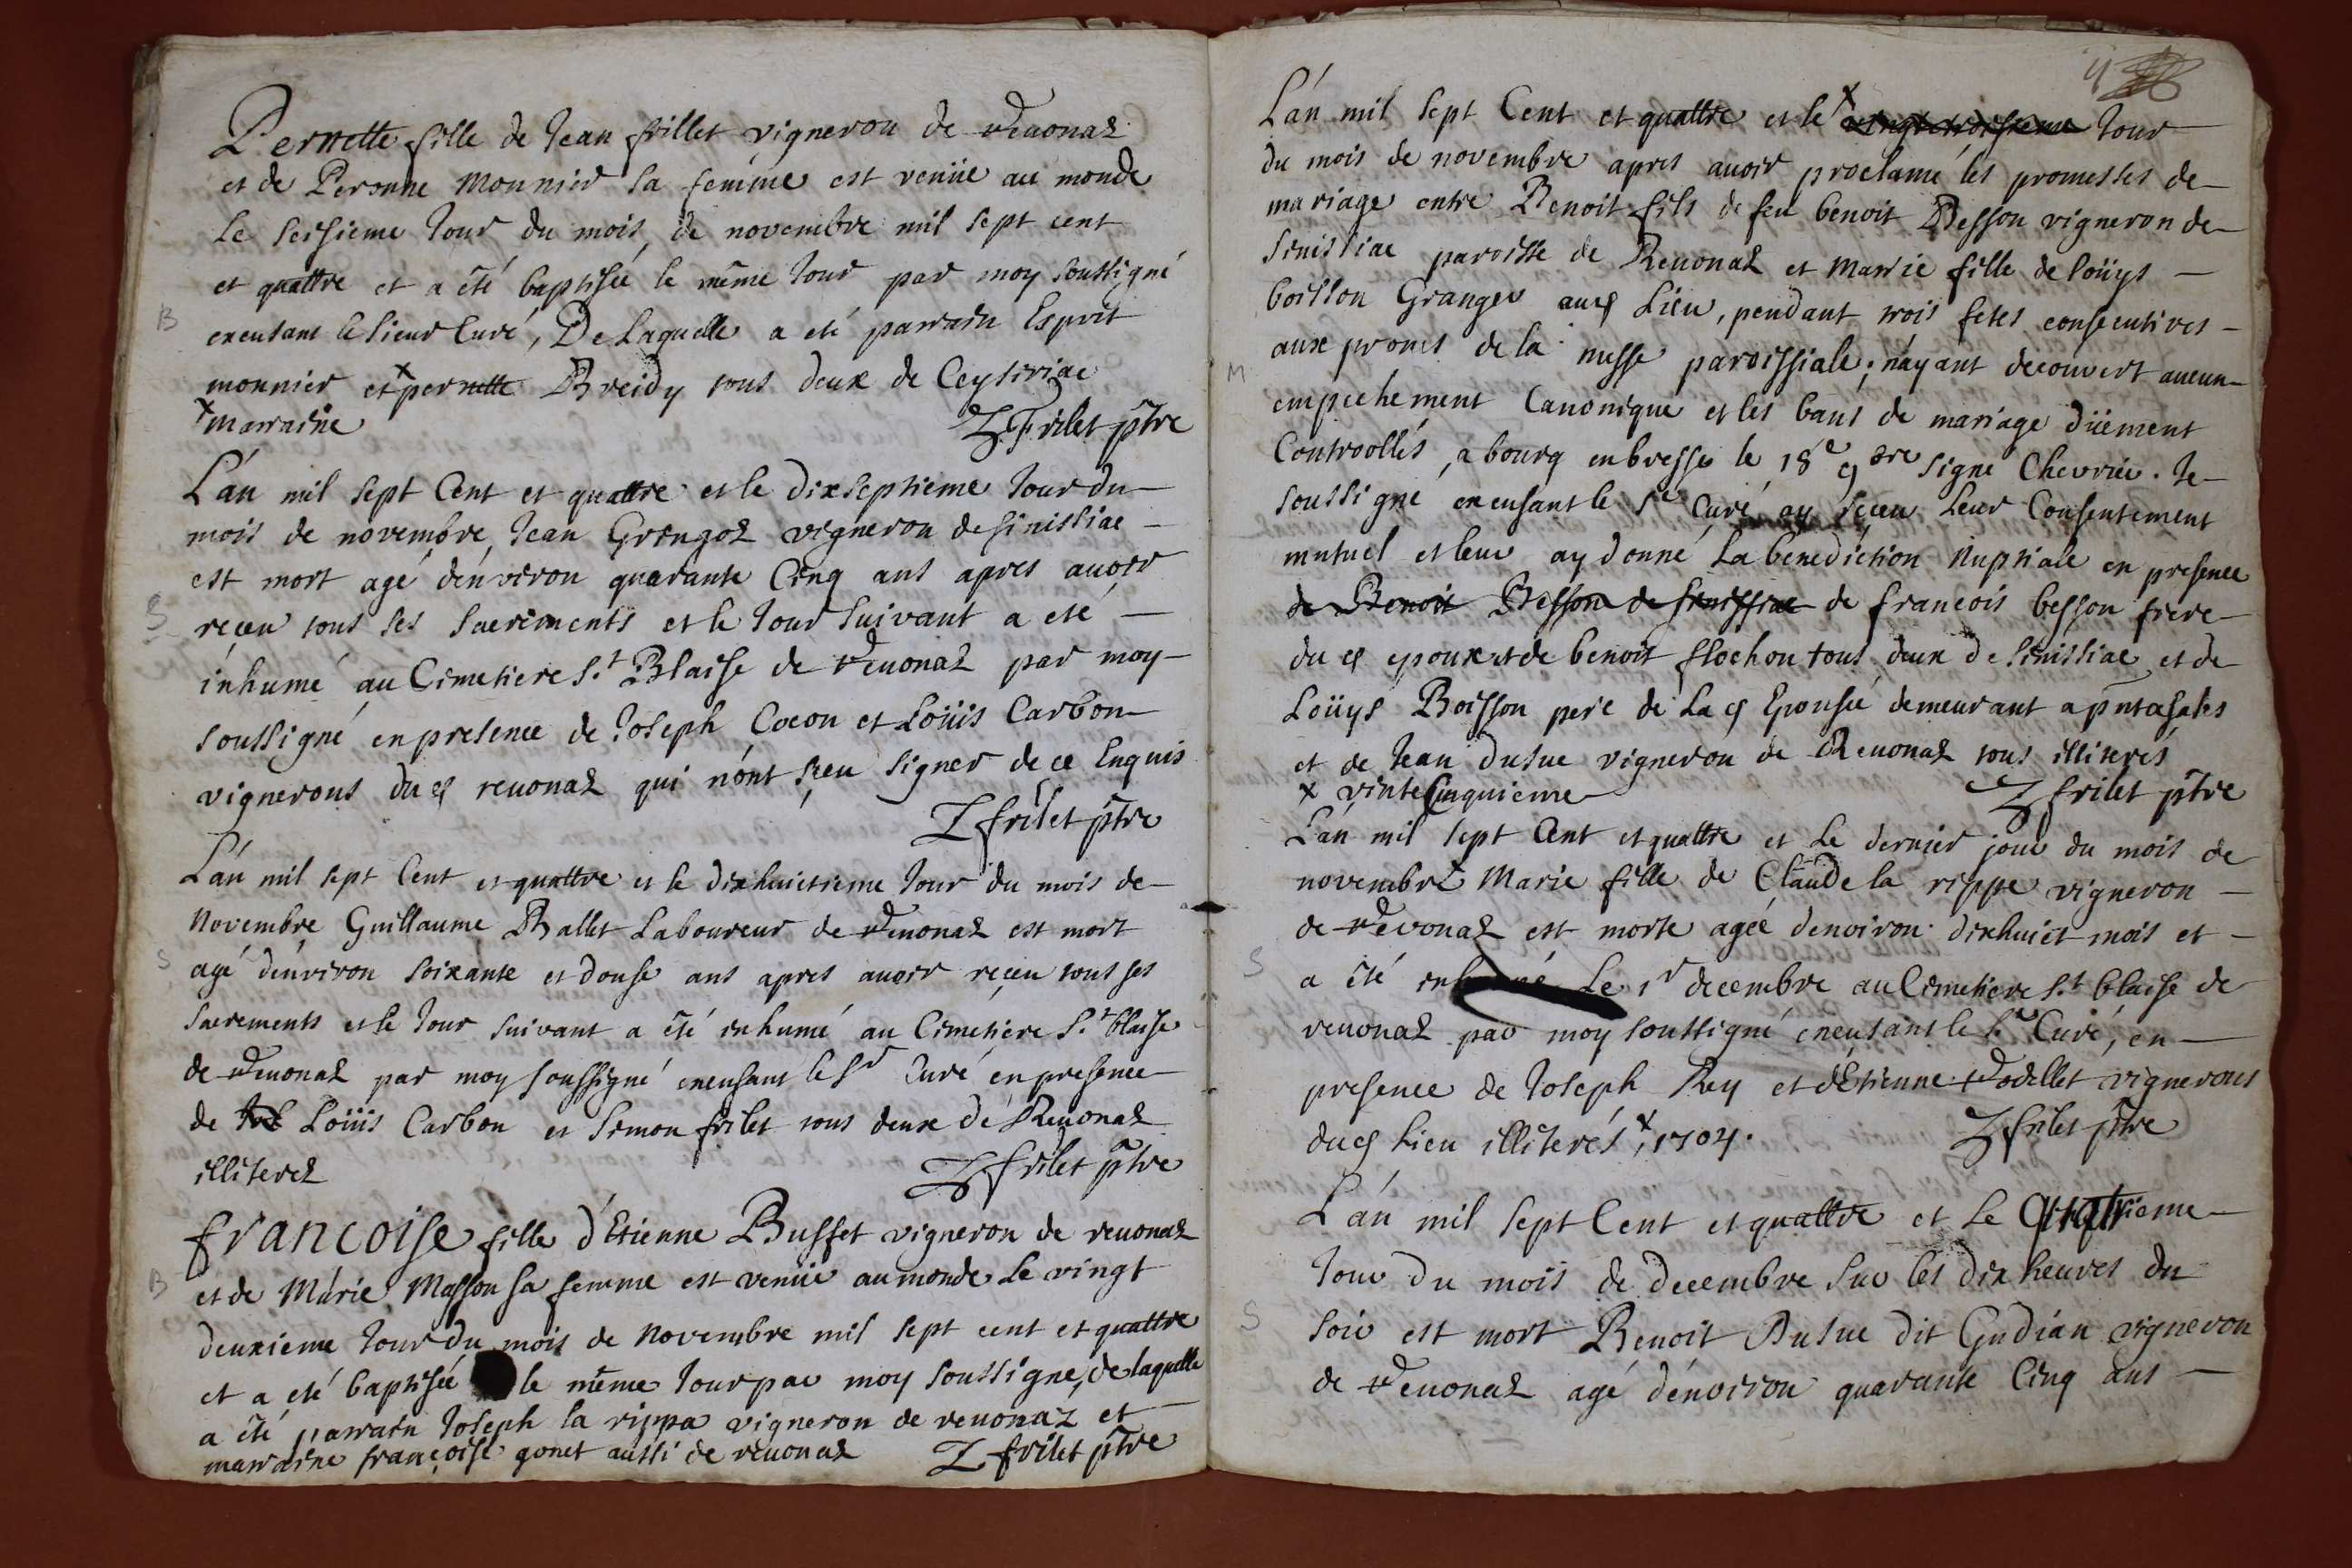 Pernette fille de Jean frillet vigneron de Reuonaz
et de Peronne Monnier sa femme est venüe au monde
le seisieme Jour du mois de novembre mil sept cent
et quattre et a été baptisée le même Jour par moy soussigné
B
excusant le sieur Curé, De laquelle a eté parrain Esprit
monnier et x pernette Breidy tous deux de Ceysiriac
x marraine
J Frilet ptre
L'án mil sept Cent et quattre et le dixseptieme Jour du
mois de novembre Jean Gringoz vigneron de sinissiac
est mort agé dénviron quarante Cinq ans apres auoir
S
reçeu tous ses sacrements et le Jour suivant a eté
inhumé au Cimetiere St Blaise de Reuonaz par moy
soussigné en presence de Joseph Cocon et Loüis Carbon
vignerons du reuonaz qui n'ont sçeu signer de ce Enquis
J frilet ptre
L'án mil sept Cent et quattre et le dixhuictieme Jour du mois de
Novembre Guillaume Ballet Laboureur de Reuonaz est mort
S
agé dénviron soixante et douse ans apres auoir reçeu tous ses
sacrements et le Jour suivant a été inhumé au Cimetiere St blaise
de Reuonaz par moy soussigné excusant le Sr Curé en presence
de Loüis Carbon et Simon frilet tous deux de Reuonaz
illiterez
J frilet ptre
francoise fille d'Etienne Busset vigneron de reuonaz
B
et de Márie Masson sa femme est venüe au monde le vingt
deuxieme Jour du mois de Novembre mil sept cent et quattre
et a eté baptisée le même Jour par moy soussigne, de laquelle
a été parrain Joseph la rippa vigneron de reuonaz et
marraine françoise gonet aussi de reuonaz
J frilet ptre
L'án mil sept Cent et quattre et le x vingt troisieme Jour
du mois de novembre apres auoir proclamé les promesses de
mariage entre Benoit fils de feu benoit Besson vigneron de
sinissiac paroisse de Reuonaz et Marie fille de loüys
boisson Granger aud Lieu, pendant trois fetes consecutives
M
aux prones de la messe paroissiale; náyant decouvert aucun
empechement Canonique et les bans de mariage düement
Controollés, a bourg en bresse le 18e 9bre signé Chevrier. Je
soussigné excusant le Sr Curé ay reçeu Leur Consentement
mutuel et leur ay donné la bénediction Nuptiale en presence
de Benoit Besson de sinissiac de francois besson frere
du d epoux et de benoit flochon tous deux de sinissiac et de
Loüys Boisson pere de la d Epousée demeurant a
et de Jean dusue vigneron de Reuonaz tous illiterés
x vinte Cinquieme
J frilet ptre
L'án mil sept Cent et quattre et Le dernier jour du mois de
novembre Marie fille de Claude la rippe vigneron
de Revonaz est morte agée denviron dixhuict mois et
S
a été inhumé Le 1r decembre au Cimetiere St blaise de
reuonaz par moy soussigné excusant le Sr Curé, en
presence de Joseph Rey et d'Etienne Rodillet vignerons
dud Lieu illiterés x, 1704.
J frilet ptre
L'án mil sept Cent et quattre et Le quatrieme
Jour du mois de decembre sur les dix heures du
S
soir est mort Benoit Dusue dit Gudián vigneron
de Reuonaz agé dénviron quarante Cinq ans